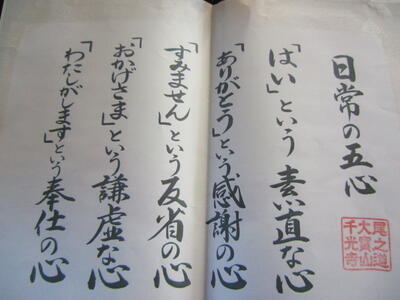 日常の五心
「はい」という素直な心
「ありがとう」という感謝の心
「すみません」という反省の心
「おかげさま」という謙虚な心
「わたしがします」という奉仕の心
尾之道
大寶山
千光寺